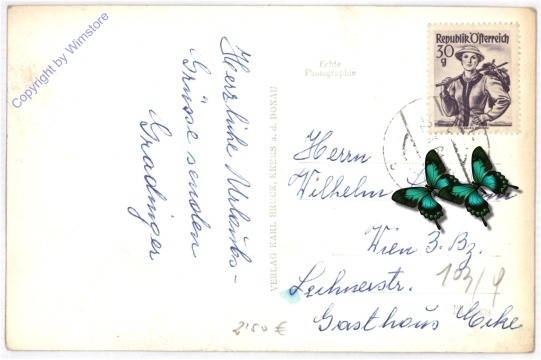 Copyright by Wimstore
Herzliche Urlaubs-
Grüsse senden
Gradinger
Echte
Photographie
VERLAG KARL BRUCK, KREMS a. d. DONAU
Republik Österreich
30
g
Herrn
Wilhelm
Wien 3. Bz.
Lechnerstr.
Gasthaus Ecke
2'50 €